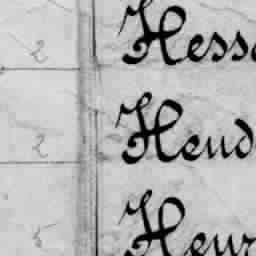 2 Hess
2 Hend
5 Henr